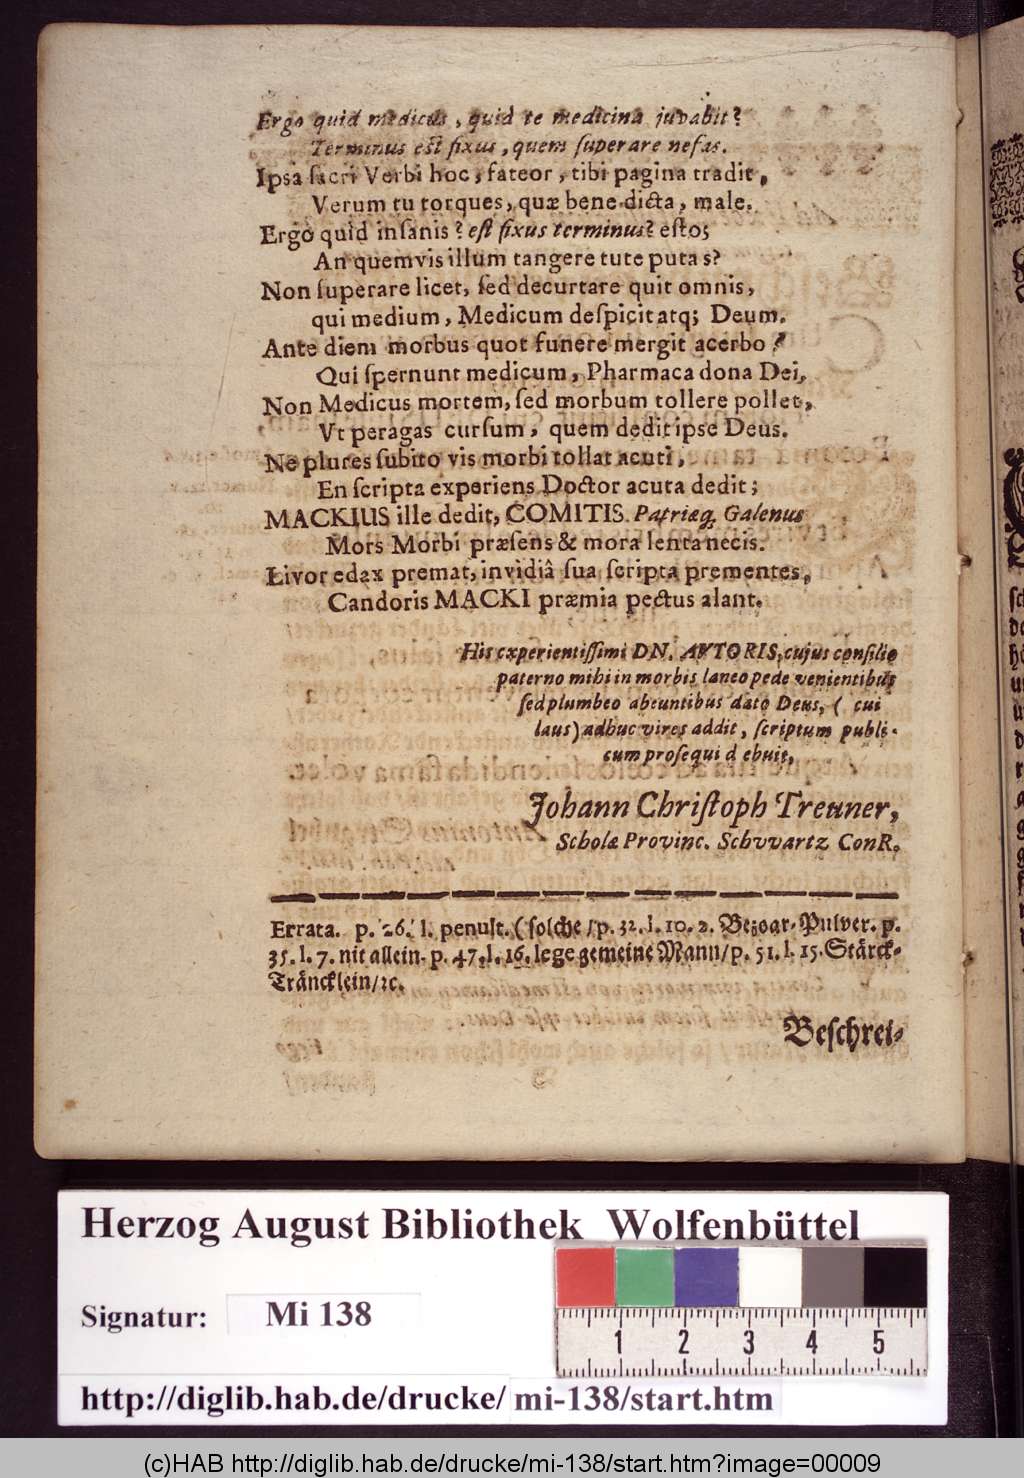 Ergo quid medicus, quid te medicina juvabit?
Terminus est fixus, quem ſuperare nefas.
Ipsa ſacri Verbi hoc, fateor, tibi pagina tradit,
Verum tu torques, quæ bene dicta, male.
Ergò quid inſanis? eſt fixus terminus? eſto;
An quemvis illum tangere tute putas?
Non ſuperare licet, ſed decurtare quit omnis,
qui medium, Medicum deſpicit atq; Deum.
Ante diem morbus quot funere mergit acerbo!
Qui ſpernunt medicum, Pharmaca dona Dei,
Non Medicus mortem, ſed morbum tollere pollet,
Vt peragas curſum, quem dedit ipse Deus.
Ne plures ſubito vis morbi tollat acuti,
En ſcripta experiens Doctor acuta dedit;
MACKIUS ille dedit, COMITIS Patriæq; Galenus
Mors Morbi præſens & mora lenta necis.
Livor edax premat, invidiâ ſua ſcripta prementes,
Candoris MACKI præmia pectus alant.
His experientiſſimi DN. AVTORIS, cujus conſilio
paterno mihi in morbis laneo pede venientibus
ſed plumbeo abeuntibus dato Deus, ( cui
laus) adhuc vires addit, ſcriptum publi-
cum proſequi d ebuit,
Johann Chriſtoph Treuner,
Scholæ Provinc. Schvvartz ConR.
Errata. p. 26. l. penult. (ſolche / p. 32. l. 10. 2. Bezoar-Pulver. p.
35. l. 7. nit allein. p. 47. l. 16. lege gemeine Mann / p. 51. l. 15. Stärck-
Träncklein / ꝛc.
Beſchrei-
Herzog August Bibliothek Wolfenbüttel
Signatur: Mi 138
1 2 3 4 5
http://diglib.hab.de/drucke/ mi-138/start.htm
(c)HAB http://diglib.hab.de/drucke/mi-138/start.htm?image=00009